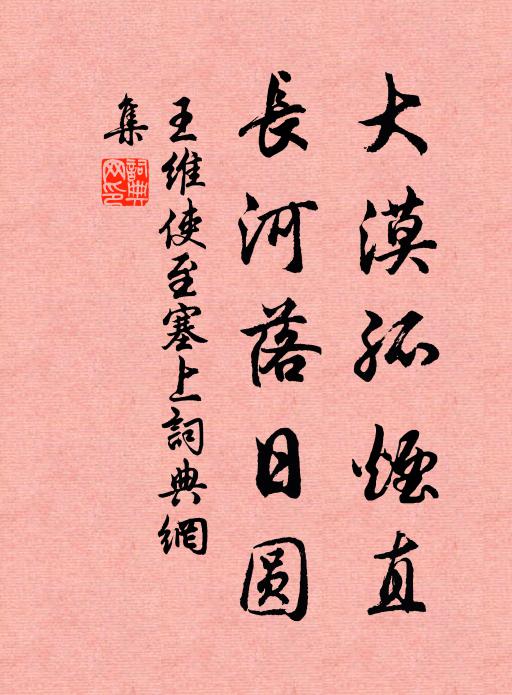 大漠孤煙直
長河落日圓
王維使至塞上詞典網
集
詞典
网印